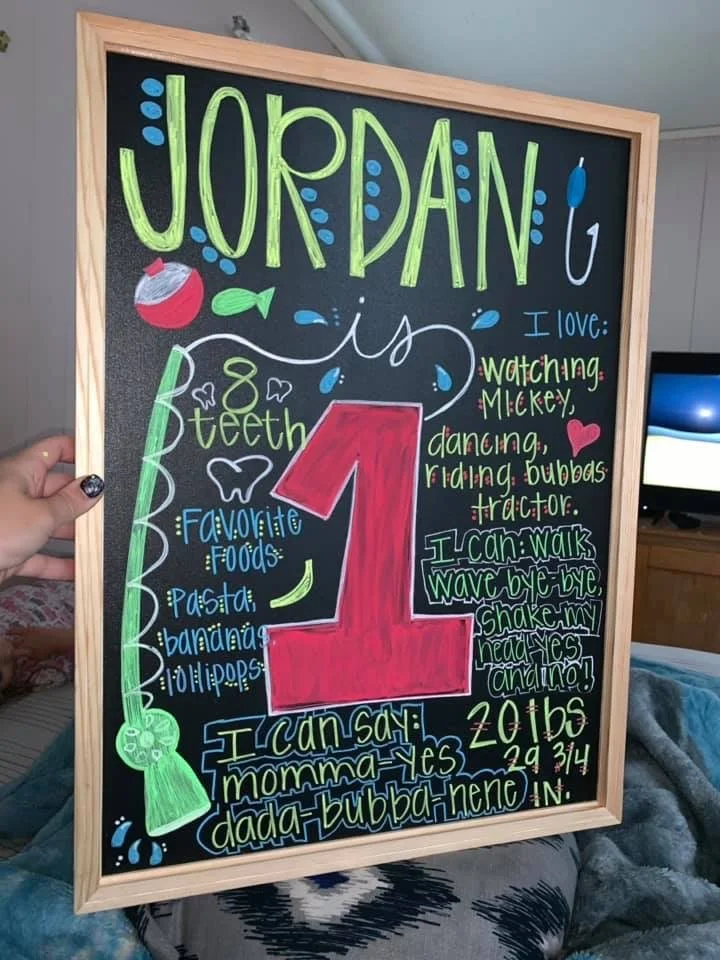 JORDAN
is
8
teeth
Favorite
Foods
Pasta,
bananas
lollipops
1
I love:
watching
Mickey,
dancing,
riding bubbas
tractor.
I can: walk,
wave bye-bye,
shake my
head-yes
and no!
I can say:
momma-yes
dada-bubba-nene
20 lbs
29 3/4
IN.